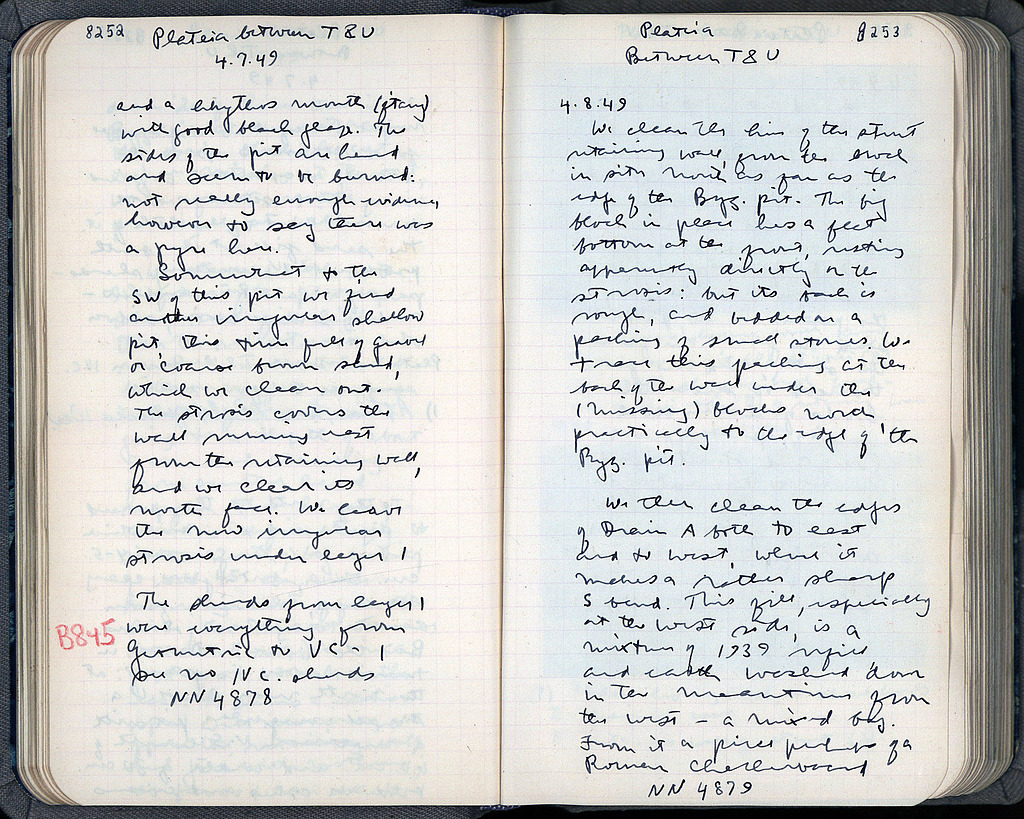 8252
Plateia between T & U
4.7.49
and a rhytos mouth (stray)
with good black glaze. The
sides of the pit are hard
and seem to be burned:
not really enough evidence
however to say there was
a pyre here.
Somewhat to the
SW of this pit we find
another irregular shallow
pit, this time full of gravel
or coarse brown sand,
which we clean out.
The strosis covers the
wall running east
from the retaining wall,
and we clear its
north face. We leave
the new irregular
strosis under layer 1
The sherds from layer 1
B845
were everything from
Geometric to VC - I
see no IVc. sherds
NN 4878
Plateia
8253
Between T & U
4.8.49
We clean the line of the street
retaining wall, from the block
in situ north as far as the
edge of the Byz. pit. The big
block in place has a flat
bottom at the front, resting
apparently directly on the
strosis: but its back is
rough, and bedded on a
packing of small stones. We
trace this packing at the
back of the wall under the
(missing) blocks north
practically to the edge of the
Byz. pit.
We then clean the edges
of Drain A both to east
and to west, where it
makes a rather sharp
S bend. This fill, especially
at the west side, is a
mixture of 1939 refill
and earth washed down
in the meantime from
the west - a mixed bag.
From it a piece of a
Roman
NN 4879